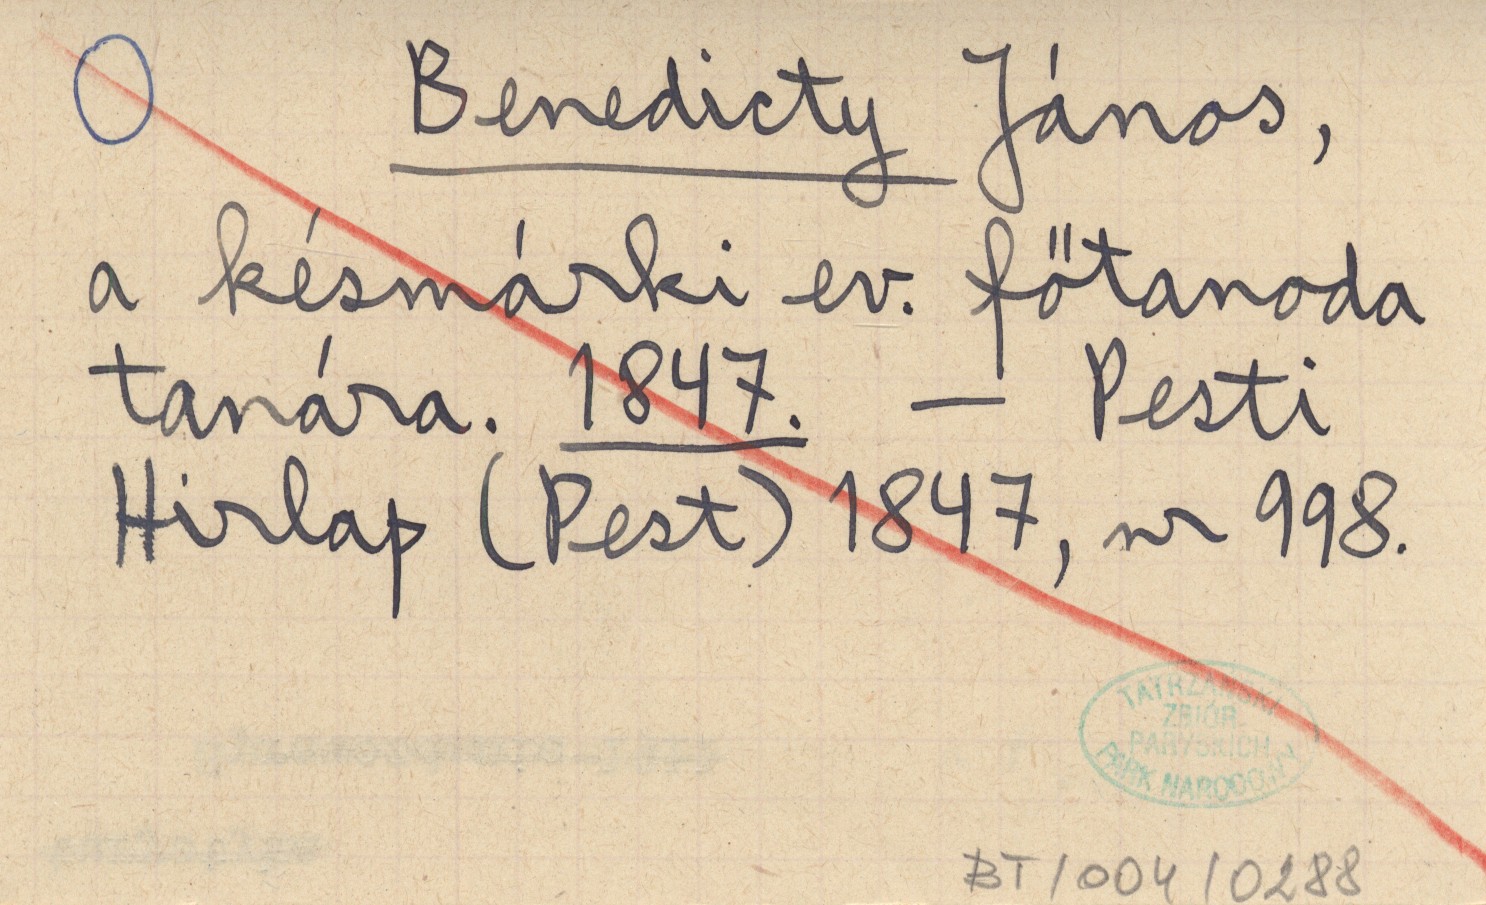 Benedicty János,
a késmárki ev. főtanoda
tanára. 1847. — Pesti
Hirlap (Pest) 1847, nr 998.
TATRZAŃSKI
ZBIÓR
PARYSKICH
PARK NARODOWY
BT/004/0288